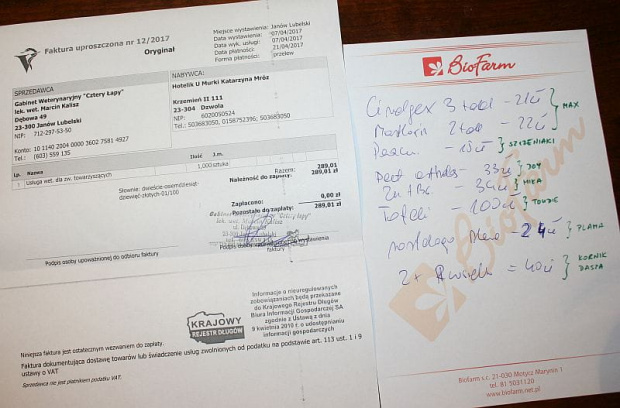 Faktura uproszczona nr 12/2017
Oryginał
Miejsce wystawienia: Janów Lubelski
Data wystawienia: 07/04/2017
Data wyk. usługi: 07/04/2017
Data płatności: 21/04/2017
Forma płatności: przelew
SPRZEDAWCA
Gabinet Weterynaryjny "Cztery Łapy"
lek. wet. Marcin Kalisz
Dębowa 49
23-300 Janów Lubelski
NIP: 712-297-53-50
Konto: 10 1140 2004 0000 3602 7581 4927
Tel.: (603) 559 135
NABYWCA:
Hotelik U Murki Katarzyna Mróz
Krzemień II 111
23-304 Dzwola
NIP: 6020050524
Tel.: 503683050, 0158752396; 503683050
Lp. Nazwa Ilość J.m.
1 Usługa wet. dla zw. towarzyszących 1,000 sztuka
Razem: 289,01
Należność do zapłaty: 289,01
Słownie: dwieście-osiemdziesiąt-dziewięć-złotych-01/100
Zapłacono: 0,00 zł
Pozostało do zapłaty: 289,01 zł
Podpis osoby upoważnionej do odbioru faktury
Podpis osoby wystawienia
Informacje o nieuregulowanych
zobowiązaniach będą przekazane
do Krajowego Rejestru Długów
Biura Informacji Gospodarczej SA
zgodnie z Ustawą z dnia
9 kwietnia 2010 r. o udostępnianiu
informacji gospodarczych
KRAJOWY
REJESTR DŁUGÓW
Niniejsza faktura jest ostatecznym wezwaniem do zapłaty.
Faktura dokumentująca dostawę towarów lub świadczenie usług zwolnionych od podatku na podstawie art. 113 ust. 1 i 9
ustawy o VAT.
Sprzedawca nie jest płatnikiem podatku VAT.
BioFarm
3 tabl - 21zł
2 tabl - 22zł
MAX
- 15zł SZCZENIAKI
- 33zł JOY
- 34zł MIKA
- 100zł TOUDIE
- 24zł PLAMA
2x = 40zł KORNIK
BASPA
BioFarm
Biofarm s.c. 21-030 Motycz Marynin 1
tel. 81 5031120
www.biofarm.net.pl